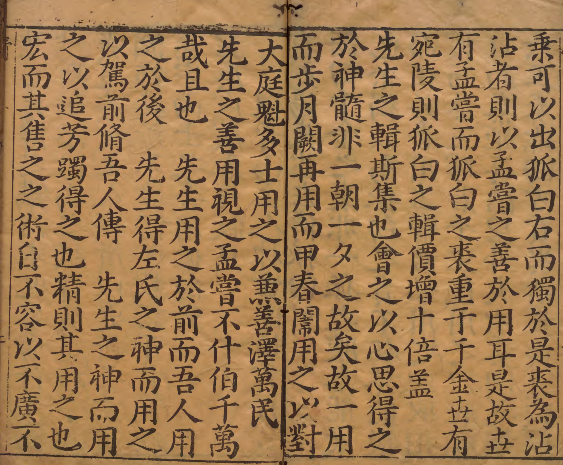 乗可以出狐白右而獨於是裘為沾
沾者則以孟嘗之善於用耳是故世
有孟嘗而狐白之裘重于千金世有
宛陵則狐白之輯價增十倍盖
先生之輯斯集也會之以心思得之
於神髓非一朝一夕之故矣故一用
而步月闕再用而甲春闈用之以對
大庭魁多士用之以兼善澤萬民
先生之善用視之孟嘗不什伯千萬
哉且也　先生用之於前而吾人用
之於後　先生得左氏之神而用之
以駕前脩吾人傳　先生之神而用
之以追芳躅得之也精則其用之也
宏而其售之之術自不容以不廣不